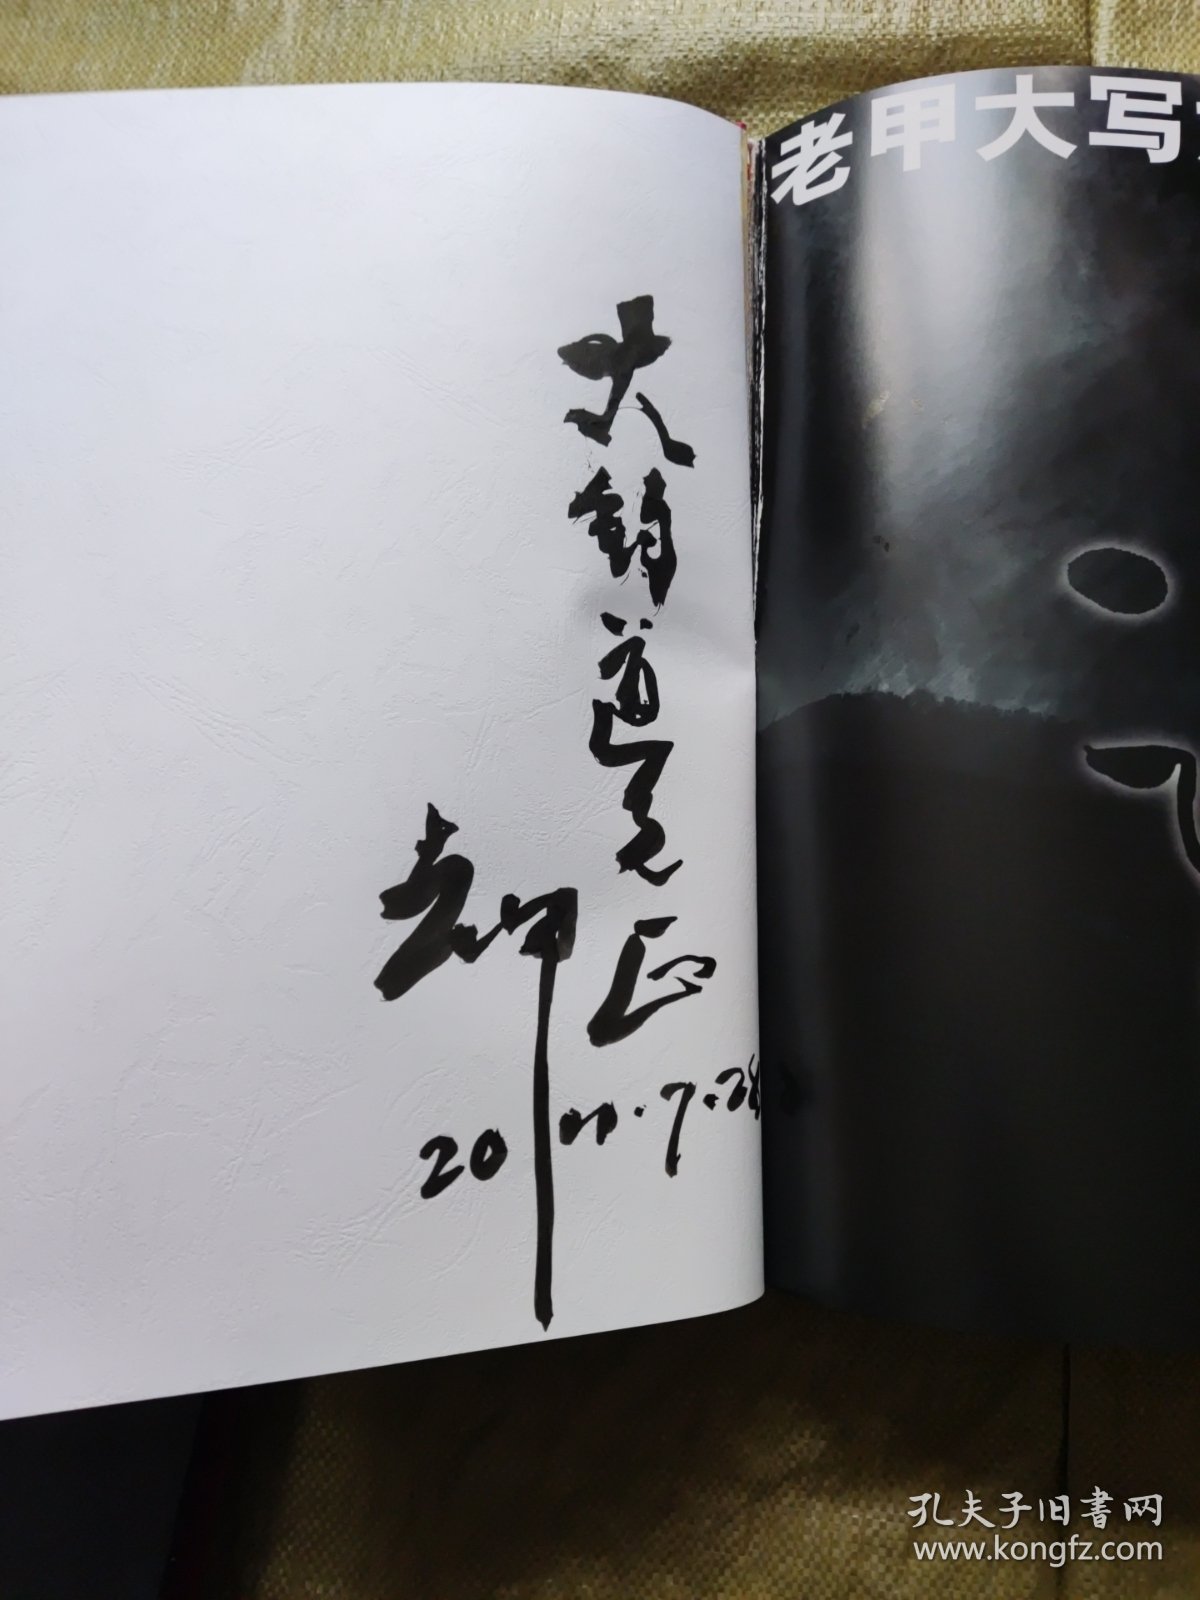 老甲大写
大钧道兄
正
老甲
20 11.7.28
孔夫子旧書网
www.kongfz.com